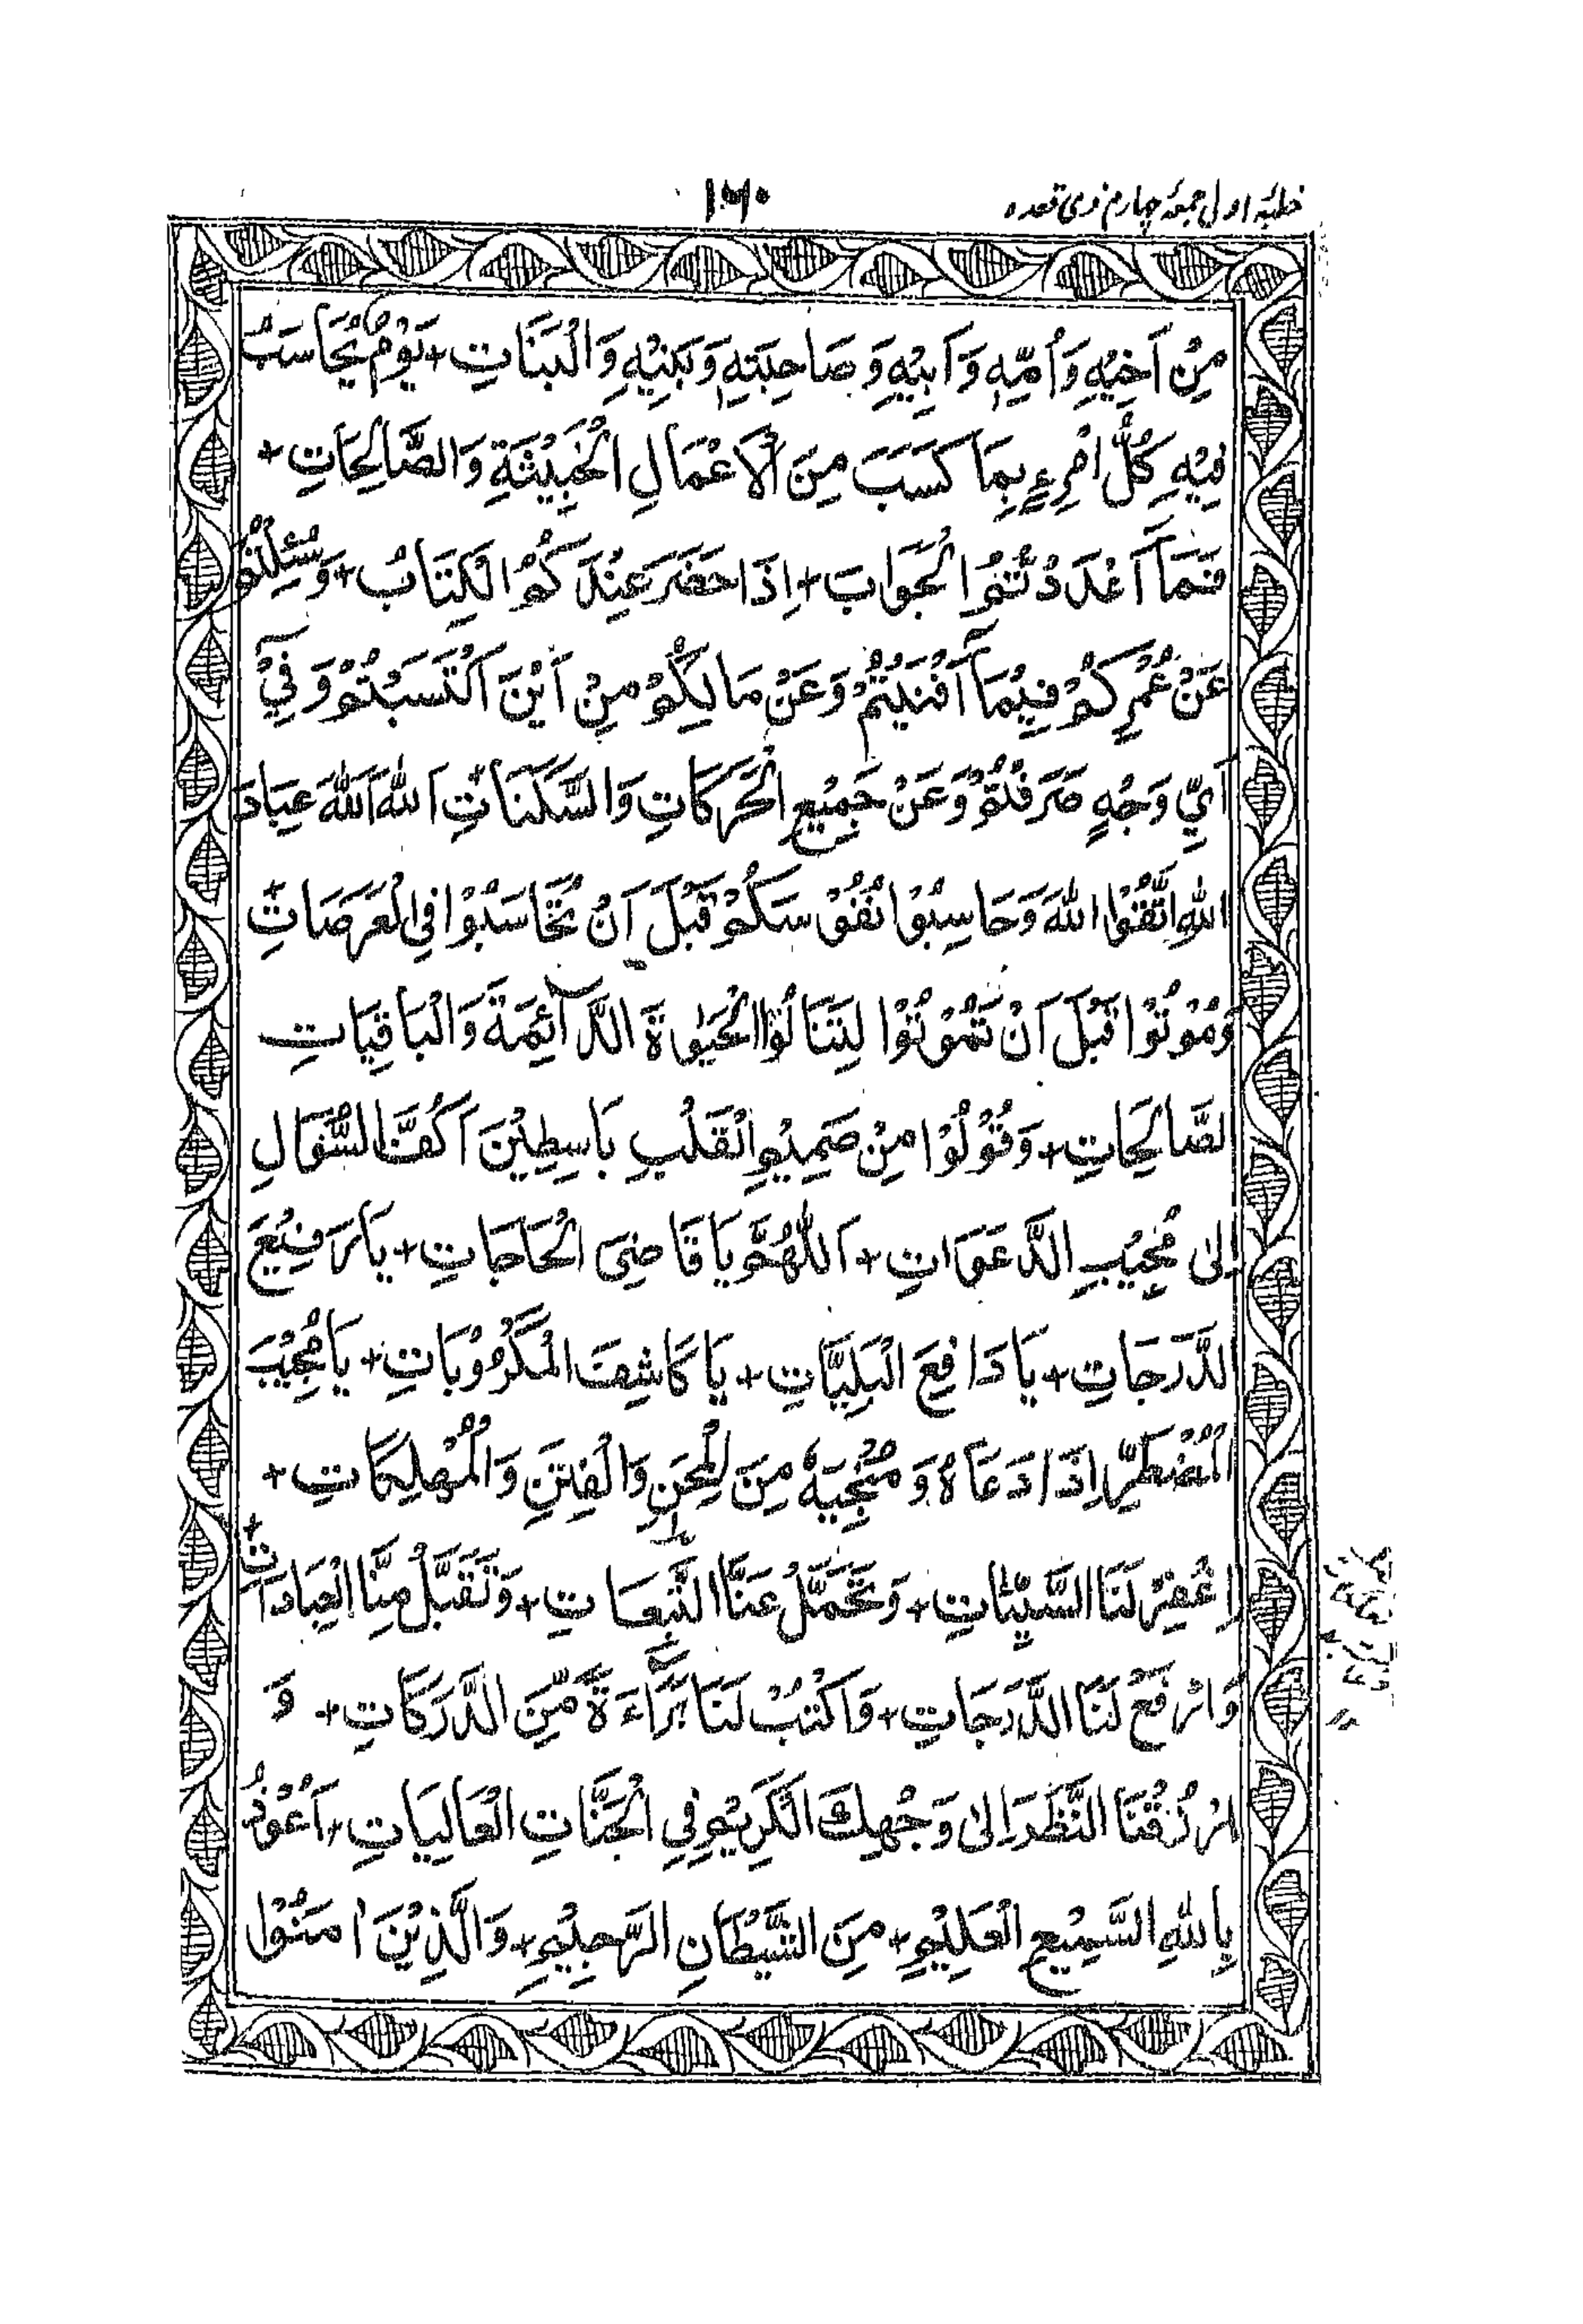 خطبۂ اولی جمعۂ چہارم ذی قعدہ
مِنْ اَخِيْهِ وَاُمِّهٖ وَاَبِيْهِ وَصَاحِبَتِهٖ وَبَنِيْهِ وَالْبَنَاتِ + يَوْمٌ يُحَاسَبُ
فِيْهِ كُلُّ امْرِءٍ بِمَا كَسَبَ مِنَ الْاَعْمَالِ الْخَبِيْثَةِ وَالصَّالِحَاتِ +
فَمَآ اَعْدَدْتُمُ الْجَوَابَ + اِذَا حَضَرَ عِنْدَكُمُ الْكِتَابُ + وَسُئِلْتُمْ
عَنْ عُمْرِكُمْ فِيْمَآ اَفْنَيْتُمْ وَعَنْ مَالِكُمْ مِنْ اَيْنَ اكْتَسَبْتُمْ وَفِيْٓ
اَيِّ وَجْهٍ صَرَفْتُمْ وَعَنْ جَمِيْعِ الْحَرَكَاتِ وَالسَّكَنَاتِ + اَللهَ اَللهَ عِبَادَ
اللهِ اتَّقُوا اللهَ وَحَاسِبُوْا نُفُوْسَكُمْ قَبْلَ اَنْ تُحَاسَبُوْا فِي الْعَرَصَاتِ +
وَمُوْتُوْا قَبْلَ اَنْ تَمُوْتُوْا لِتَنَالُوا الْحَيٰوةَ الدَّآئِمَةَ وَالْبَاقِيَاتِ
الصَّالِحَاتِ + وَقُوْلُوْا مِنْ صَمِيْمِ الْقَلْبِ بَاسِطِيْنَ اَكُفَّنَا لِسُّؤَالِ
اِلٰى مُجِيْبِ الدَّعَوَاتِ + اَللّٰهُمَّ يَا قَاضِيَ الْحَاجَاتِ + يَا رَفِيْعَ
الدَّرَجَاتِ + يَا دَافِعَ الْبَلِيَّاتِ + يَا كَاشِفَ الْمَكْرُوْبَاتِ + يَا مُجِيْبَ
الْمُضْطَرِّ اِذَا دَعَاهُ وَمُنْجِيَهٗ مِنَ الْمِحَنِ وَالْفِتَنِ وَالْمُهْلِكَاتِ +
اِغْفِرْ لَنَا السَّيِّئَاتِ + وَتَحَمَّلْ عَنَّا التَّبِعَاتِ + وَتَقَبَّلْ مِنَّا الْعِبَادَاتِ +
وَارْفَعْ لَنَا الدَّرَجَاتِ + وَاكْتُبْ لَنَا بَرَآءَةً مِّنَ الدَّرَكَاتِ + وَ
ارْزُقْنَا النَّظَرَ اِلٰى وَجْهِكَ الْكَرِيْمِ فِي الْجَنَّاتِ الْعَالِيَاتِ + اَعُوْذُ
بِاللهِ السَّمِيْعِ الْعَلِيْمِ + مِنَ الشَّيْطَانِ الرَّجِيْمِ + وَالَّذِيْنَ اٰمَنُوْا